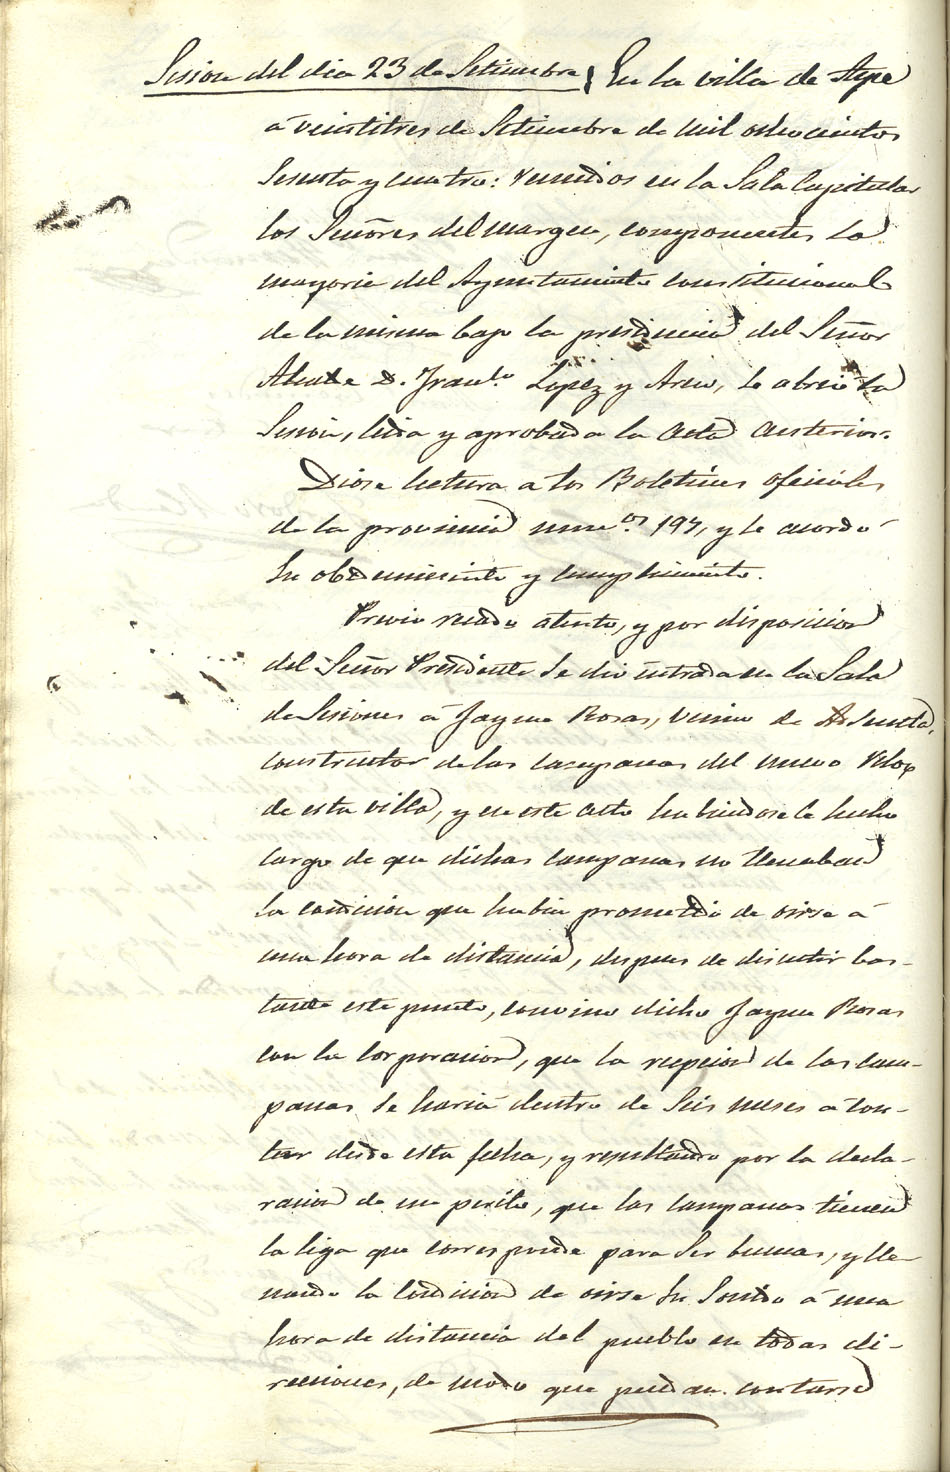 Sesion del dia 23 de Setiembre } En la villa de Aspe
á veintitres de Setiembre de mil ochocientos
sesenta y cuatro: reunidos en la Sala Capitular
los Señores del margen, componentes la
mayoria del Ayuntamiento constitucional
de la misma bajo la presidencia del Señor
Alcalde D. Franco. Lopez y
se abrió la
Sesion, leida y aprobada la acta anterior.
Diose lectura a los Boletines oficiales
de la provincia numos. 197, y se acordó
su obedecimiento y cumplimiento.
Previo recado atento, y por disposicion
del Señor Presidente se dio entrada en la Sala
de Sesiones á Jayme Rosas, vecino de Adsueta,
constructor de las campanas del nuevo Relox
de esta villa, y en este acto habiendosele hecho
cargo de que dichas campanas no llenaban
la condicion que habia prometido de oirse á
una hora de distancia, despues de discutir bas-
tante este punto, convino dicho Jayme Rosas
con la Corporacion, que la recepcion de las cam-
panas se haria dentro de seis meses á con-
tar desde esta fecha, y resultando por la decla-
racion de un perito, que las campanas tienen
la liga que corresponde para ser buenas, y lle-
nando la condicion de oirse su sonido á una
hora de distancia del pueblo en todas di-
recciones, de modo que puedan contarse